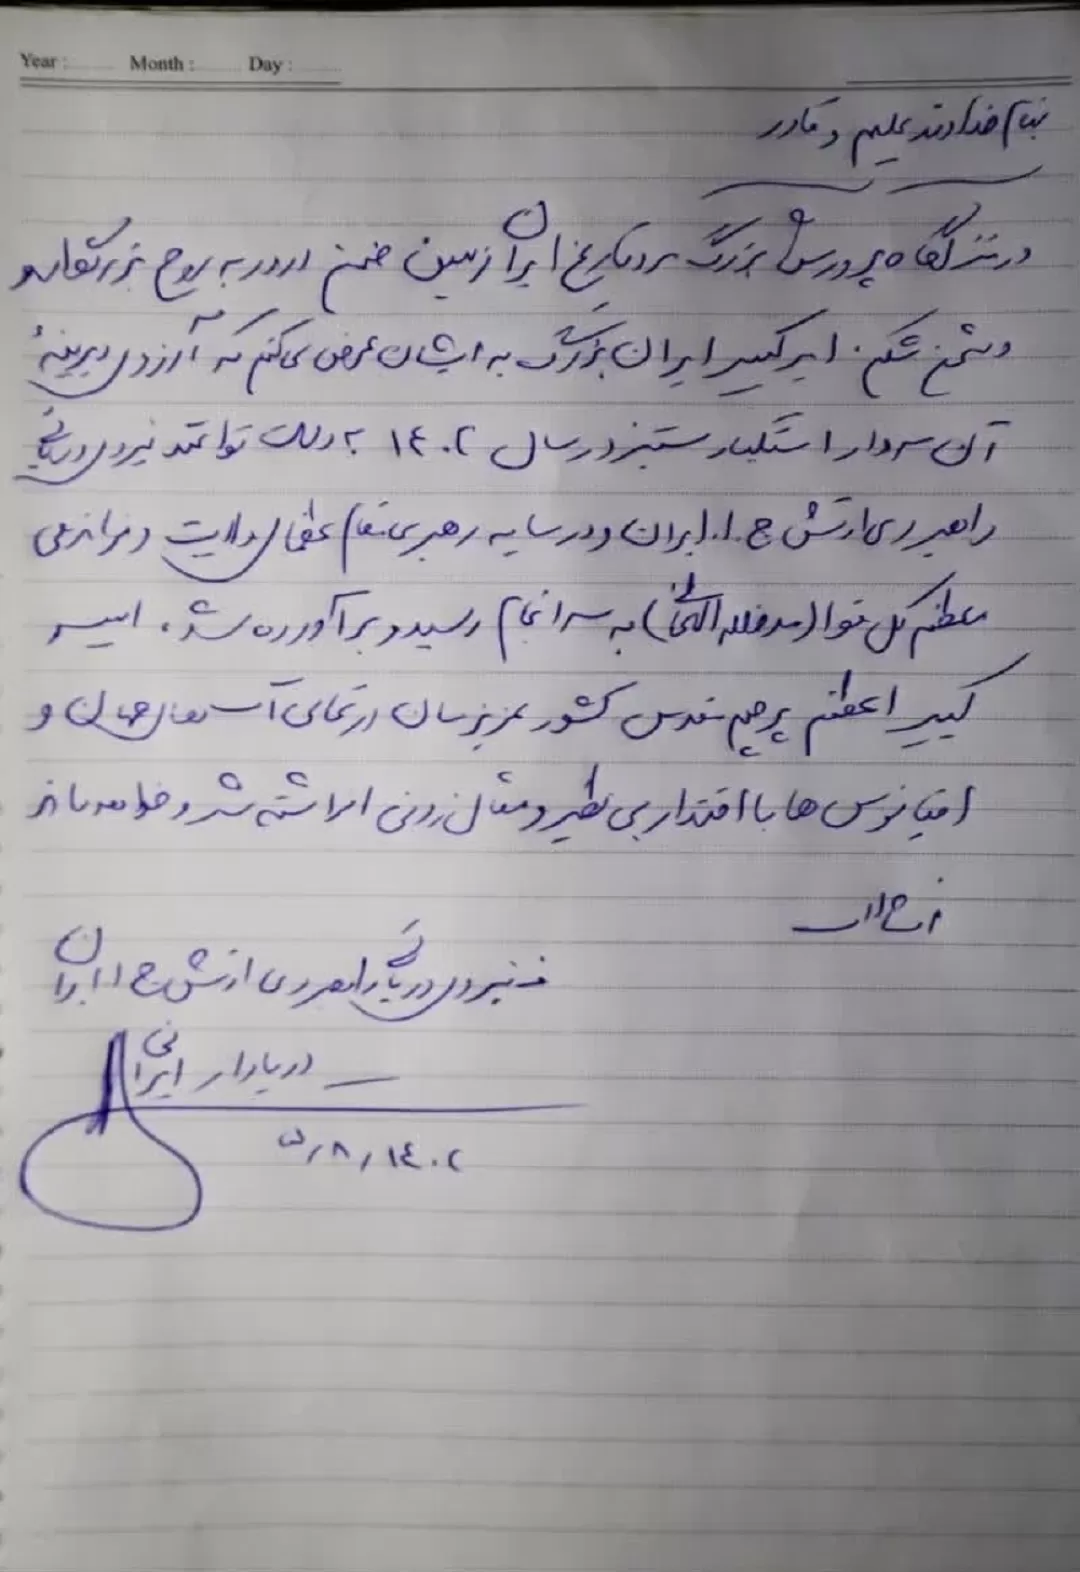 Year : Month : Day :
بنام خداوند علیم و قادر
در نزدگاه پرورش بزرگ مرد تاریخ ایران زمین ضمن درود به روح بزرگوار و
دشمن شکن امیر کبیر ایران بزرگ به ایشان عرض می کنم که آرزوی دیرینهٔ
آن سردار استکبار ستیز در سال ١٤٠٢ به دست توانمند نیروی دریایی
راهبردی ارتش ج.ا.ایران و در سایه رهبری مقام عظمای ولایت و فرماندهی
معظم کل قوا (مدظله العالی) به سرانجام رسید و برآورده شد. امیر
کبیر اعظم پرچم مقدس کشور عزیزمان در تمامی آب های جهان و
اقیانوس ها با اقتدار بی نظیر و مثال زدنی افراشته شد و خواهد ماند
ف نیروی دریایی راهبردی ارتش ج ا ایران
دریادار ایرانی
١٤٠٢/٨/٥